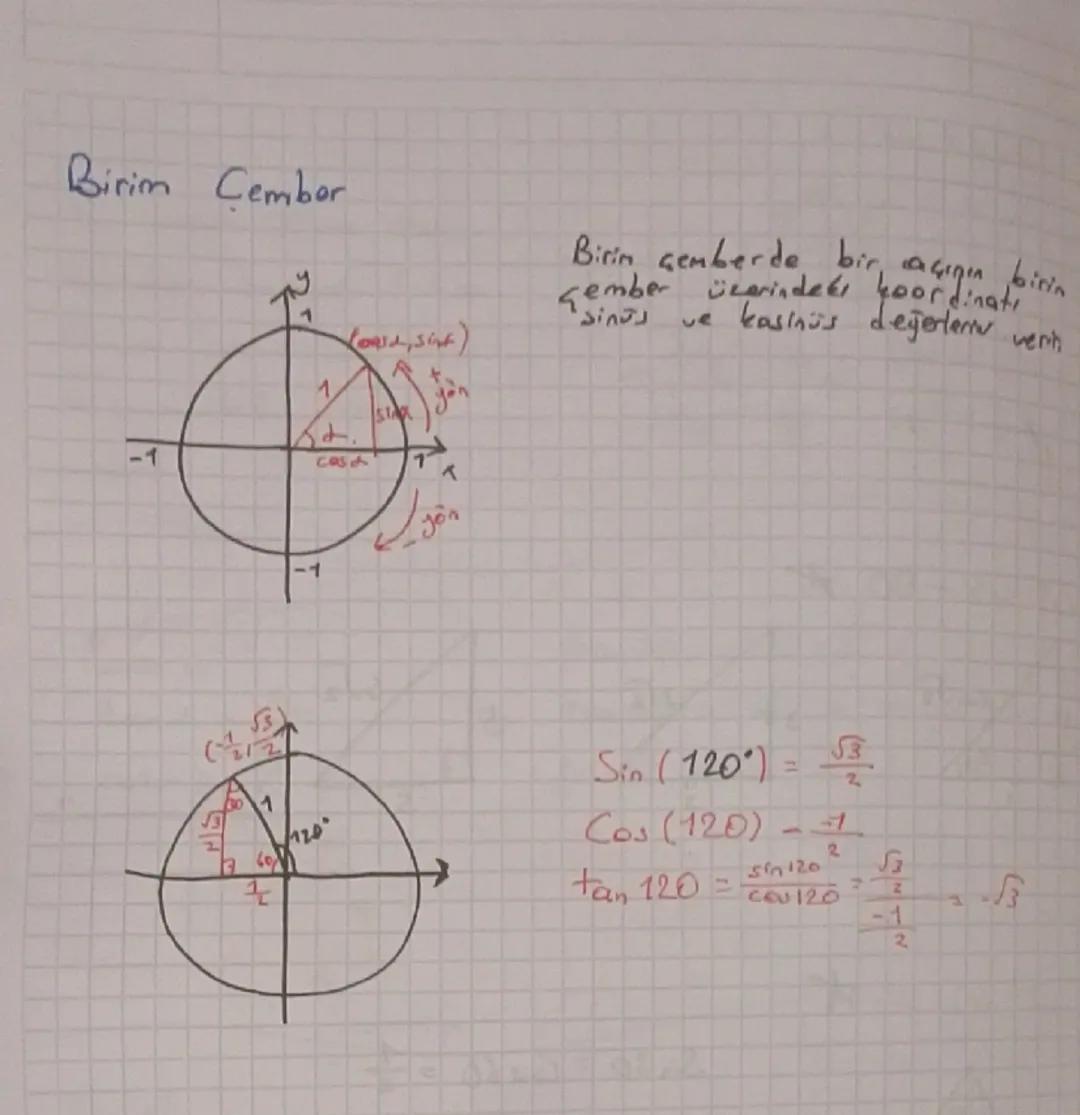 Birim Çember
Birim çemberde bir açının birim
çember üzerindeki koordinatı
sinüs ve kosinüs değerlerini verir
y
1
(cosα, sinα)
1
sinα
+ yön
α
-1
cosα
1
x
- yön
-1
(-1/2, √3/2)
30
1
√3/2
120°
60
1/2
Sin(120°) = √3/2
Cos(120) = -1/2
tan 120 = sin120/cos120 = √3/2 / -1/2 = -√3